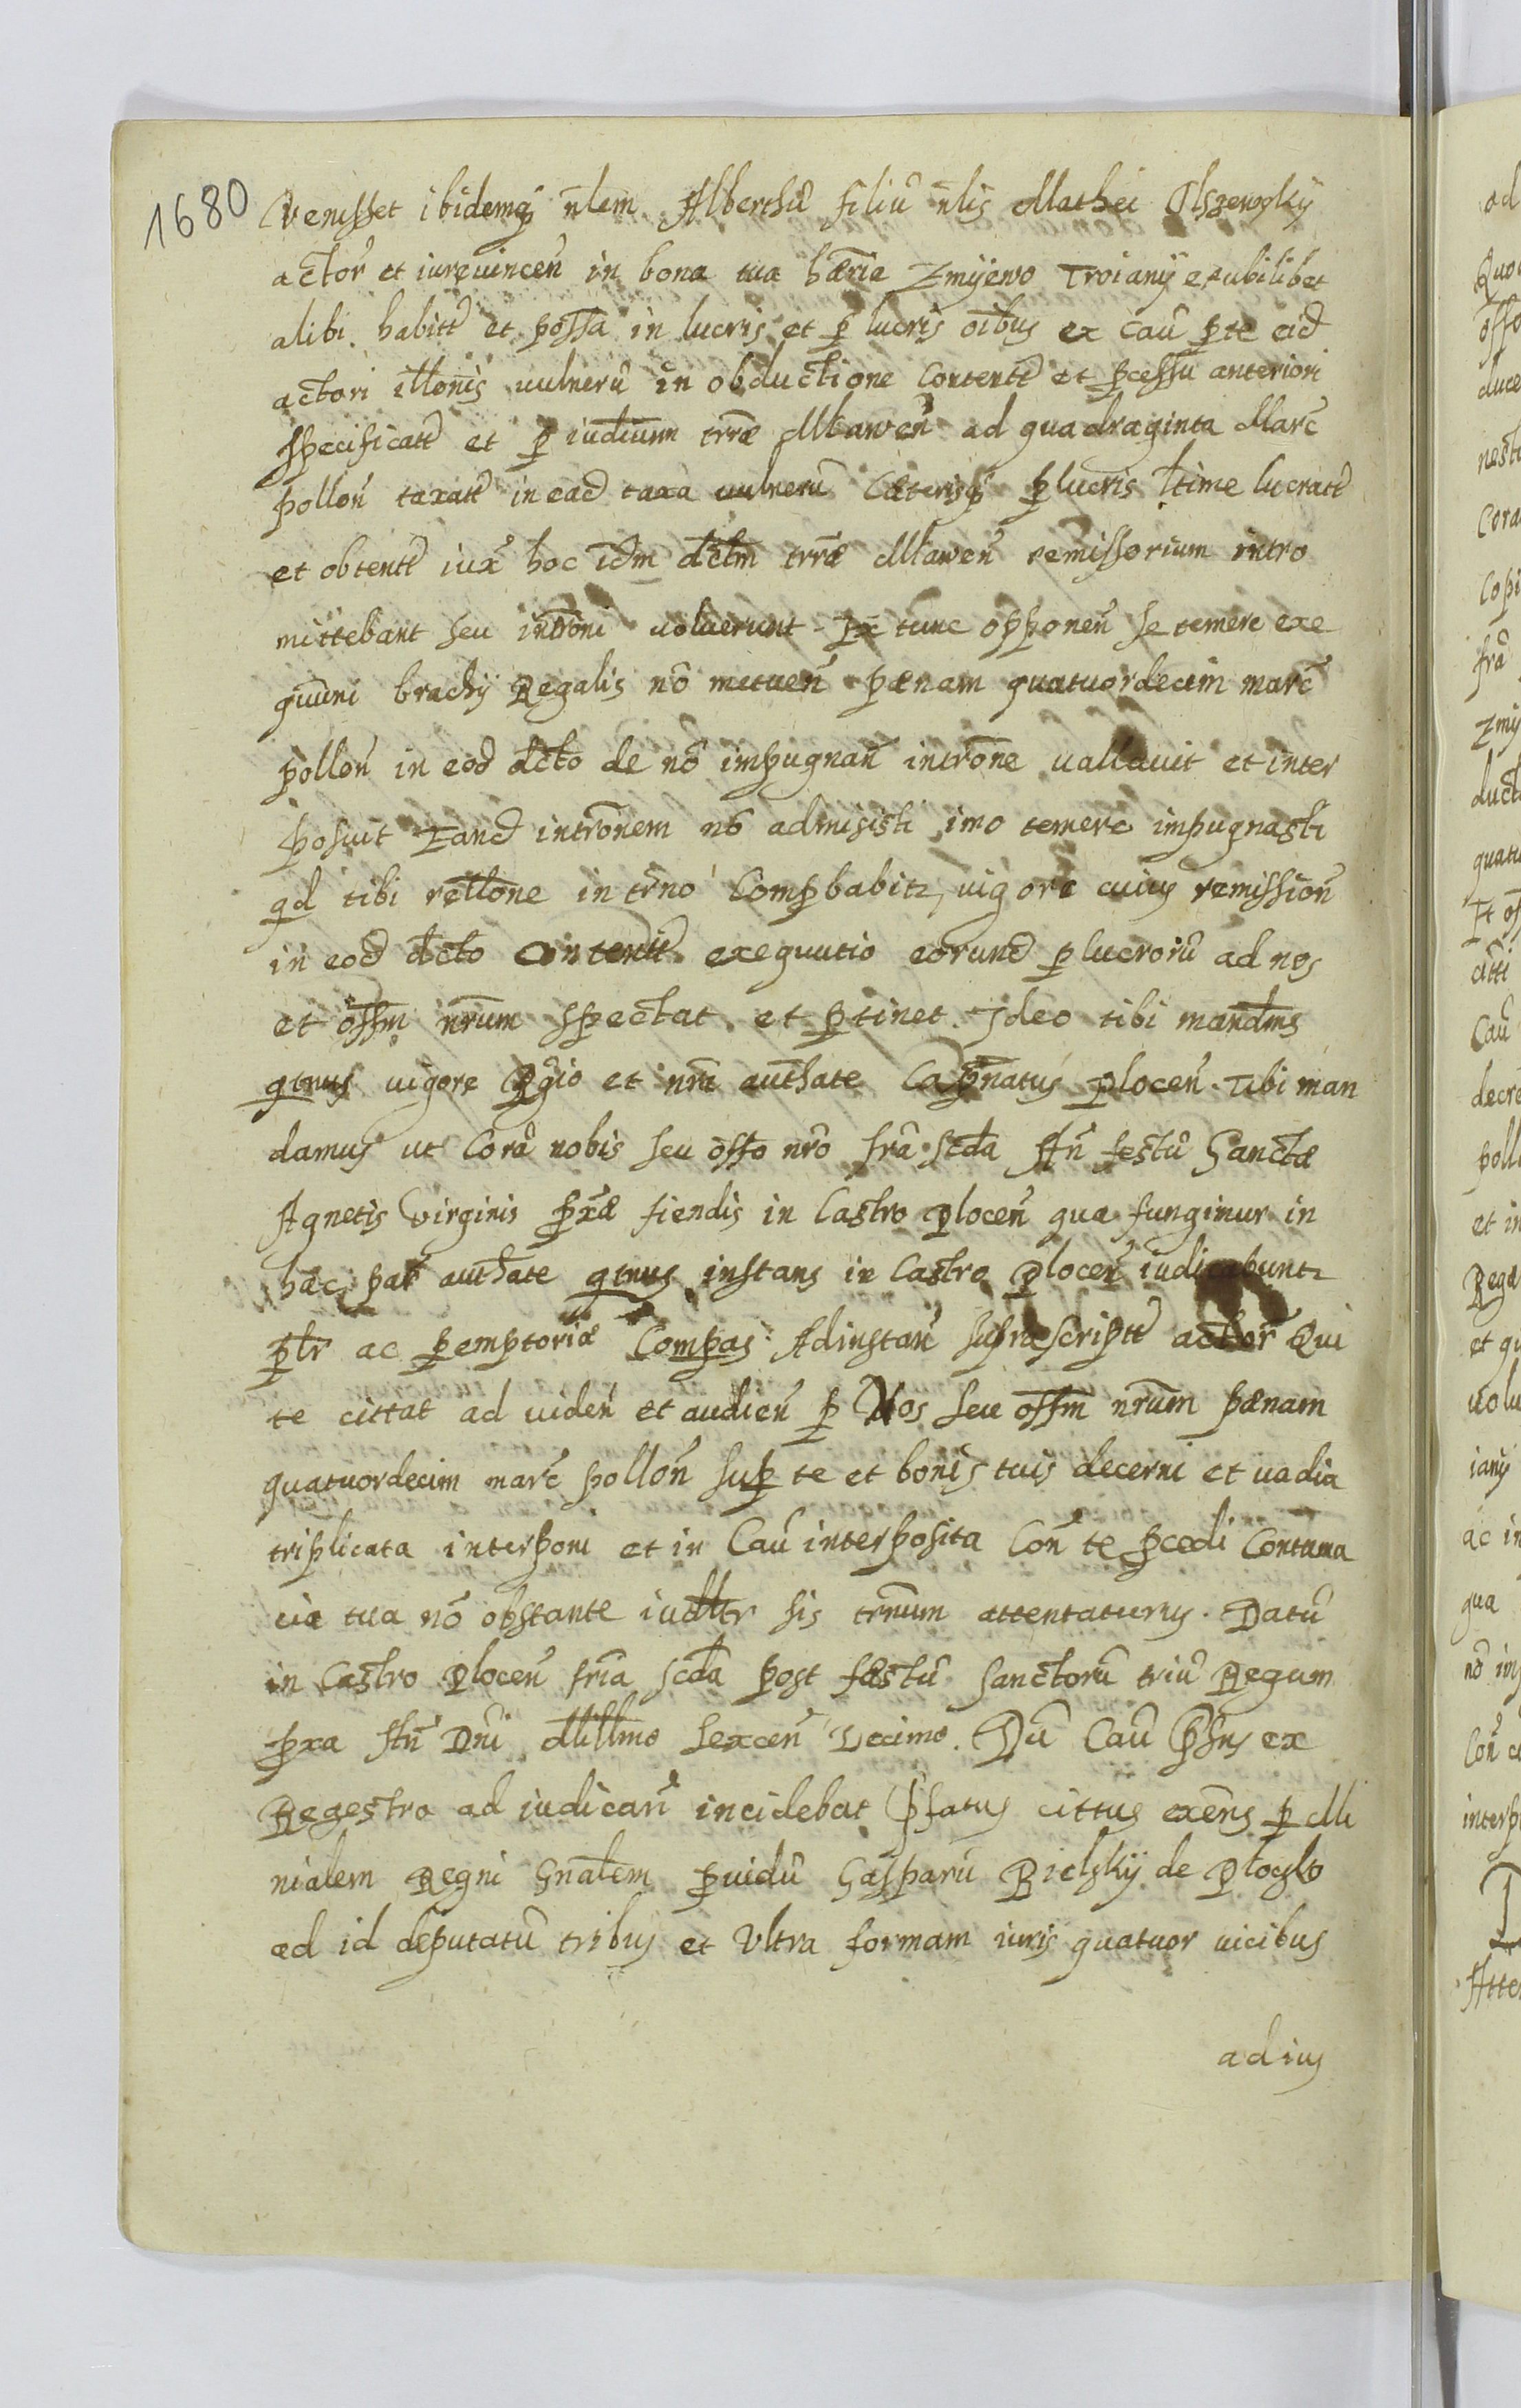 1680
Venisset ibidemq nlem Alberthũ filiũ nlis Mathei Olszewsky
actor̃ et iurevinceñ in bona tua hæria Zmijewo Troiany et ubilibet
alibi habitt et possa in lucris et p lucris oĩbus ex caũ pte eid
actori illonis vulnerũ in obductione Contentt et pcessu anteriori
specificatt et p iudium trræ Mlaweñ ad quadraginta Marc
polloñ taxatt in ead taxa vulnerũ Cæterisq plucris ltime lucratt
et obtentt iux hoc idm dctm trræ Mlaweñ remissorium intro
mittebant seu introni voluerunt tunc opponeñ se temere exe
quuni brachy Regalis nõ metueñ pænam quatuordecim marc
polloñ in eod dcto de nõ impugnañ introne vallavit et inter
posuit Eand intronem nõ admisisti imo temere impugnasti
qd tibi rellone in trno Compbabitz, vigore cuius remissioñ
in eod dcto Contentt exequutio eorund plucrorũ ad nos
et offm nrum spectat et ptinet. Ideo tibi mandms
qtnus vigore Rgio et nra authate Captnatus Ploceñ Tibi man
damus ut Corã nobis seu offo nro fria scda Añ festũ Sanctæ
Agnetis Virginis pxæ fiendis in Castro Ploceñ qua fungimur in
hac par authate qtnus instans in Castro Ploceñ iudicabuntz
pltr ac pemptoriæ Compas Adinstañ suprascriptt actor̃ Qui
te cittat ad videñ et audieñ p Nos seu offm nrum pænam
quatuordecim marc polloñ sup te et bonis tuis decerni et vadia
triplicata interponi et in Caũ interposita Coñ te pcedi Contuma
cia tua nõ obstante iudlltr sis trnum attentaturus. Datũ
in Castro Ploceñ fria scda post fæstũ sanctorũ triũ Regum
pxa Añ Dni Millmo Sexceñ Decimo. Dũ Caũ phns ex
Regestro ad iudicañ incidebat Pfatus cittus exens p Mi
nialem Regni Gnalem pvidũ Gasparũ Bielsky de Plocsko
ad id deputatũ tribus et Ultra formam iuris quatuor vicibus
ad ius